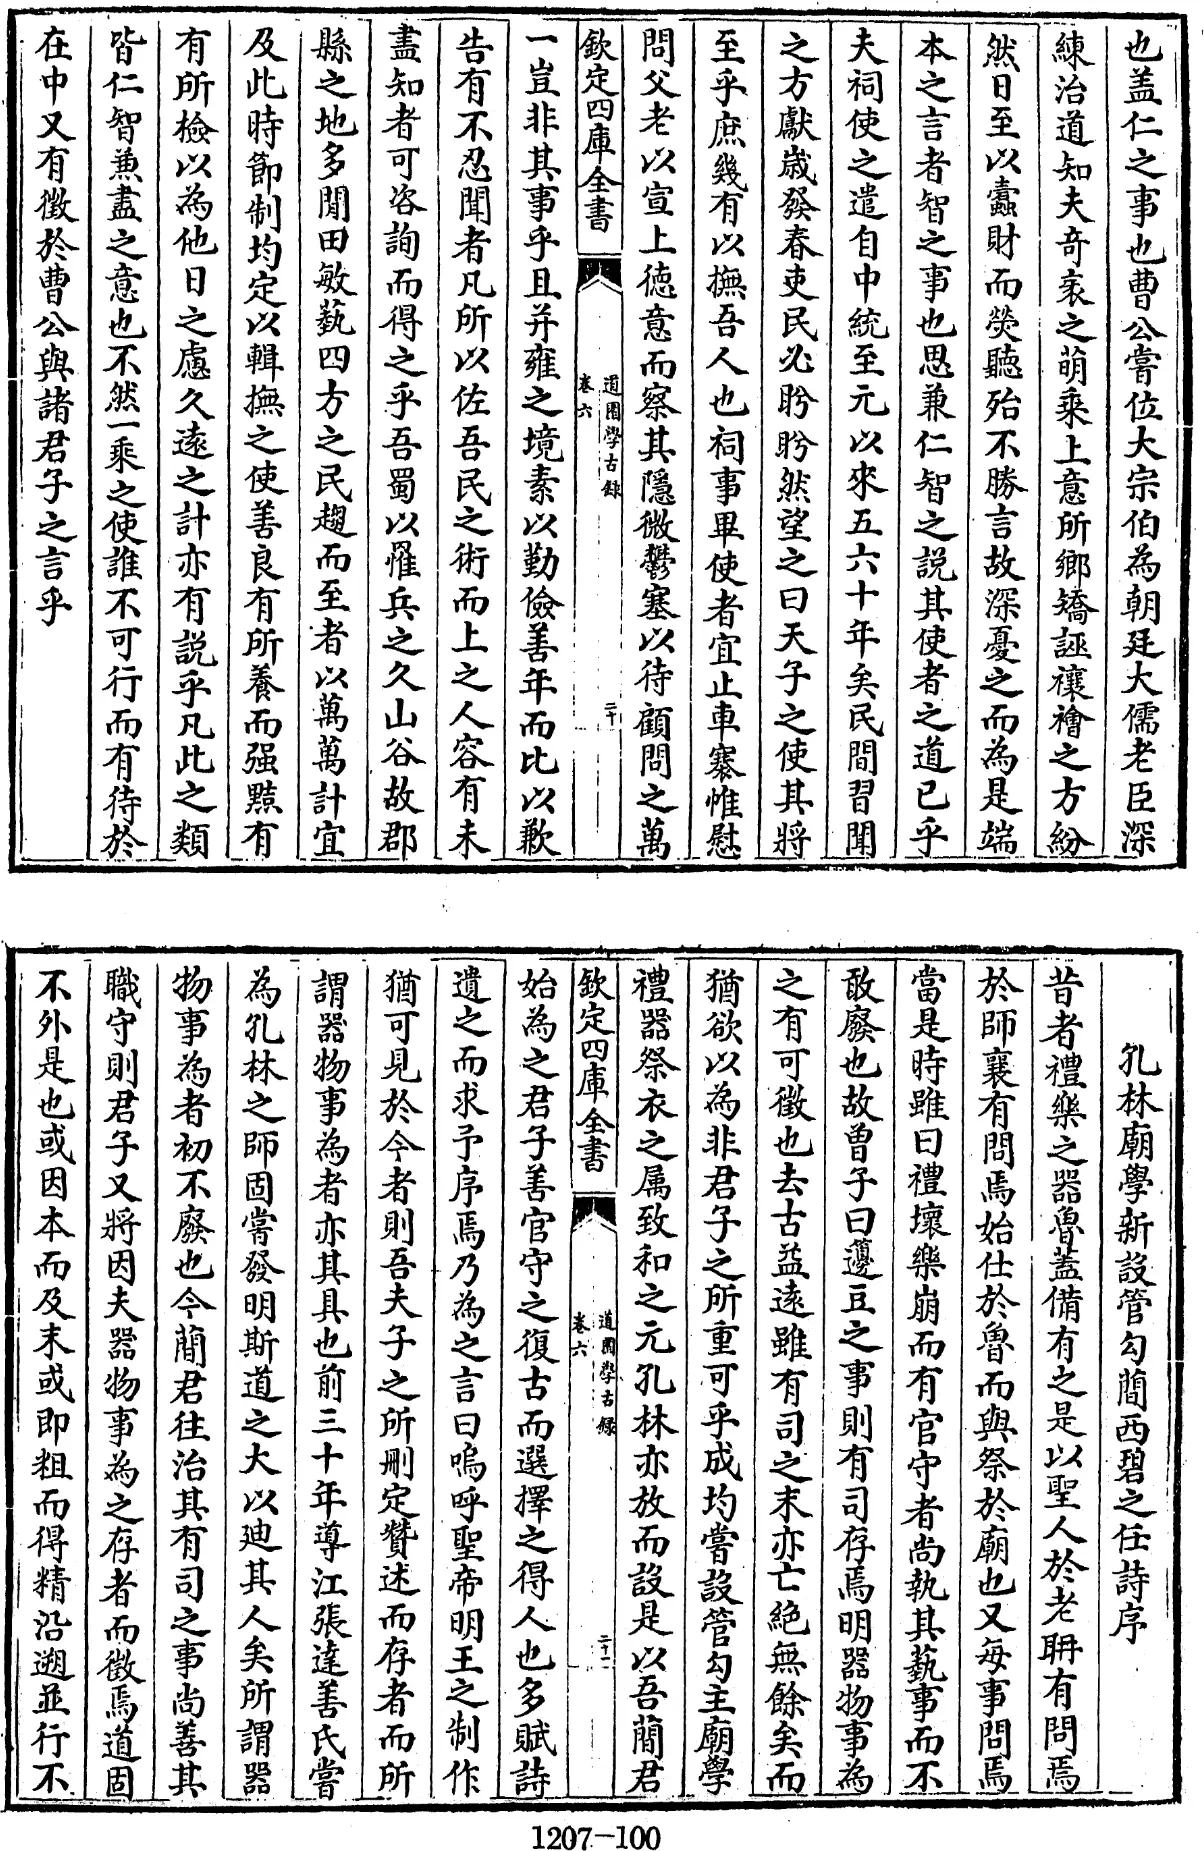 也盖仁之事也曹公嘗位大宗伯為朝廷大儒老臣深
練治道知夫奇衺之萌乘上意所鄉矯誣禳禬之方紛
然日至以蠹財而熒聽殆不勝言故深憂之而為是端
本之言者智之事也思兼仁智之説其使者之道已乎
夫祠使之遣自中統至元以來五六十年矣民間習聞
之方獻歲發春吏民必盻盻然望之曰天子之使其將
至乎庶幾有以撫吾人也祠事畢使者宜止車褰帷慰
問父老以宣上徳意而察其隱微鬱塞以待顧問之萬
欽定四庫全書
道園學古録
卷六
二十
一豈非其事乎且并雍之境素以勤儉善年而比以歉
告有不忍聞者凡所以佐吾民之術而上之人容有未
盡知者可咨詢而得之乎吾蜀以罹兵之久山谷故郡
縣之地多閒田敏蓺四方之民趨而至者以萬萬計宜
及此時節制均定以輯撫之使善良有所養而强㸃有
有所檢以為他日之慮久逺之計亦有説乎凡此之類
皆仁智兼盡之意也不然一乘之使誰不可行而有待於
在中又有徵於曹公與諸君子之言乎
孔林廟學新設管勾簡西碧之任詩序
昔者禮樂之器魯葢備有之是以聖人於老聃有問焉
於師襄有問焉始仕於魯而與祭於廟也又每事問焉
當是時雖曰禮壞樂崩而有官守者尚執其蓺事而不
敢廢也故曾子曰籩豆之事則有司存焉明器物事為
之有可徵也去古益逺雖有司之末亦亡絶無餘矣而
猶欲以為非君子之所重可乎成均嘗設管勾主廟學
禮器祭衣之属致和之元孔林亦放而設是以吾簡君
欽定四庫全書
道園學古録
卷六
二十一
始為之君子善官守之復古而選擇之得人也多賦詩
遺之而求予序焉乃為之言曰嗚呼聖帝明王之制作
猶可見於今者則吾夫子之所刪定贊述而存者而所
謂器物事為者亦其具也前三十年導江張達善氏嘗
為孔林之師固嘗發明斯道之大以迪其人矣所謂器
物事為者初不廢也今簡君往治其有司之事尚善其
職守則君子又將因夫器物事為之存者而徵焉道固
不外是也或因本而及末或即粗而得精沿遡並行不
1207-100